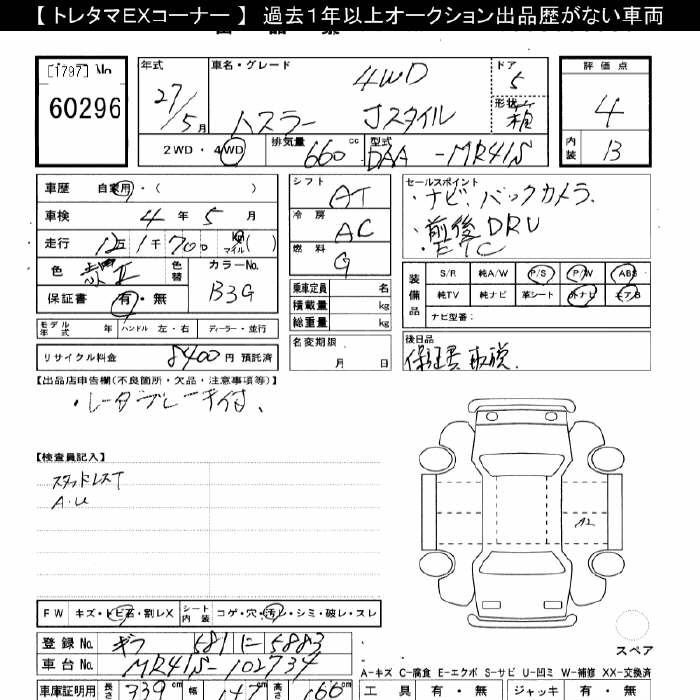 【トレタマEXコーナー】 過去1年以上オークション出品歴がない車両
[1797] No
60296
年式
27/5月
車名・グレード
4WD
ハスラー Jスタイル
ドア
5
形状
箱
評価点
4
内装
B
2WD・4WD
排気量 660cc
型式 DAA-MR41S
車歴 自家用・( )
車検 4年5月
走行 12万1千700km マイル( )
色
色替
カラーNo.
B3G
保証書 有・無
モデル年式 年 ハンドル 左・右 ディーラー・並行
リサイクル料金 8400円 預託済
シフト AT
冷房 AC
燃料 G
乗車定員 名
積載量 kg
総重量 kg
名変期限
月 日
セールスポイント
・ナビ、バックカメラ、
・前後DRV
・ETC
装備品
S/R 純A/W P/S P/W ABS
純TV 純ナビ 革シート 外ナビ エアB
ナビ型番:
後日品
保証書 取説
【出品店申告欄(不良箇所・欠品・注意事項等)】
・レーダブレーキ付、
【検査員記入】
スタッドレスT
A・U
A2
FW キズ・トビ石・割レX
シート内装 コゲ・穴・汚レ・シミ・破レ・スレ
登録No. ギフ 581 に 5883
車台No. MR41S-102734
車庫証明用 長さ 339cm 幅 147cm 高さ 166cm
スペア
A-キズ C-腐食 E-エクボ S-サビ U-凹ミ W-補修 XX-交換済
工具 有・無 ジャッキ 有・無